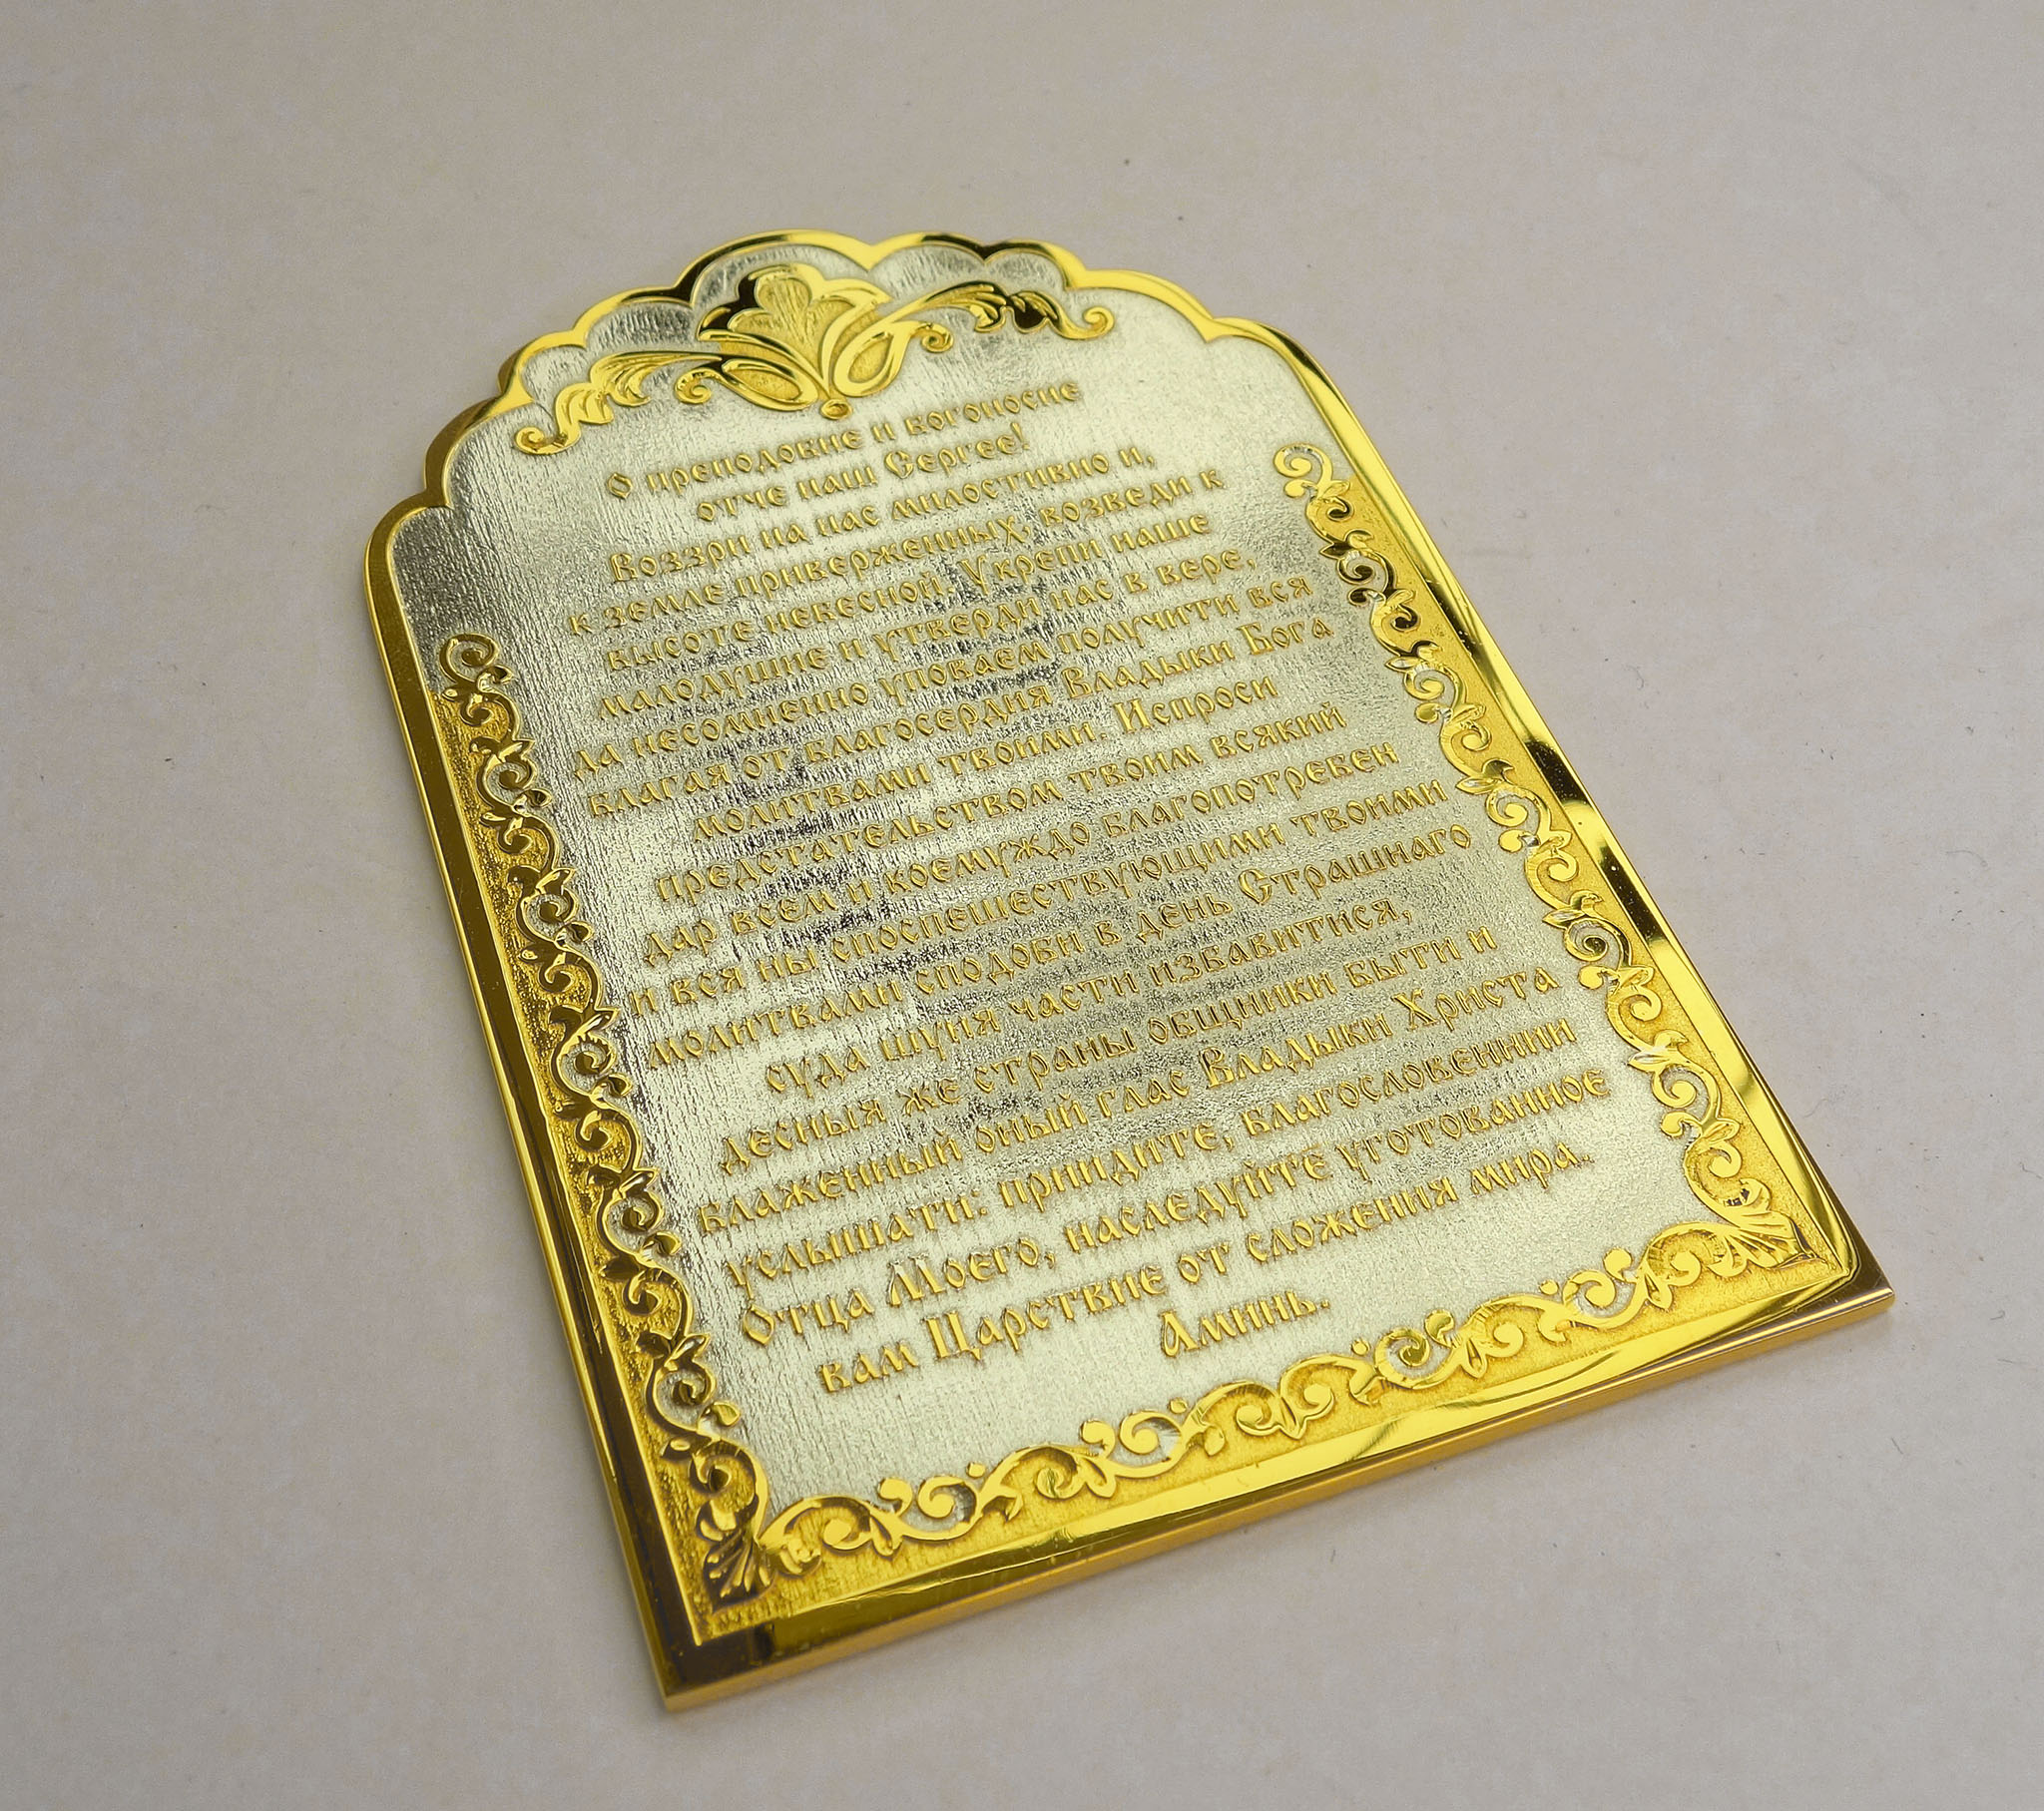 О преподобне и богоносне
отче наш Сергее!
Воззри на нас милостивно и,
к земле приверженных, возведи к
высоте небесной. Укрепи наше
малодушие и утверди нас в вере,
да несомненно уповаем получити вся
благая от благосердия Владыки Бога
молитвами твоими. Испроси
предстательством твоим всякий
дар всем и коемуждо благопотребен
и вся ны споспешествующими твоими
молитвами сподоби в день Страшнаго
суда шуия части избавитися,
десныя же страны общники быти и
блаженный оный глас Владыки Христа
услышати: приидите, благословеннии
Отца Моего, наследуйте уготованное
вам Царствие от сложения мира.
Аминь.